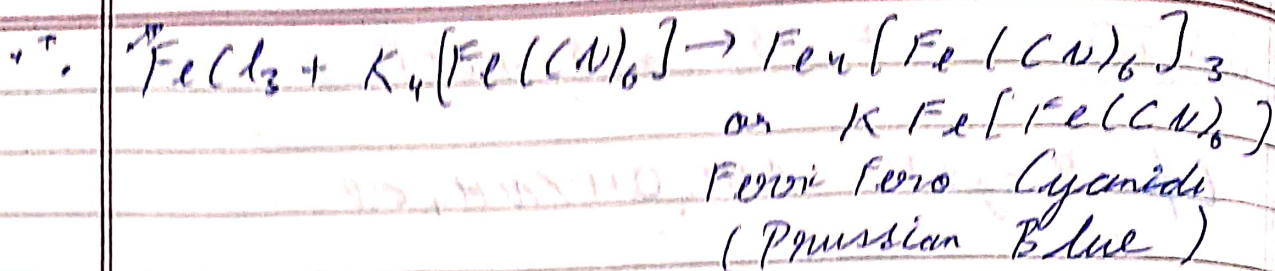 ∴ FeCl₃ + K₄[Fe(CN)₆] → Fe₄[Fe(CN)₆]₃
or KFe[Fe(CN)₆]
Ferri Ferro Cyanide
(Prussian Blue)